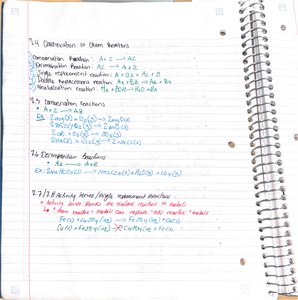 7.4 Classification of Chem Reactions
Combination Reaction: A + Z → AZ
Decomposition Reaction: AZ → A + Z
Single replacement reaction: A + BZ → AZ + B
Double Replacement reaction: AX + BZ → AZ + BX
Neutralization reaction: HX + BOH → H₂O + BX
7.5 Combination Reactions
• A + Z → AZ
Ex: 2Mg(s) + O₂(g) → 2MgO(s)
S(s) + O₂(g) → SO₂(g)
2Na(s) + Cl₂(g) → 2NaCl(s)
7.6 Decomposition Reactions
• AZ → A + Z
Ex: 2NaHCO₃(s) → Na₂CO₃(s) + H₂O(g) + CO₂(g)
7.7/7.8 Activity Series/Single replacement Reactions
• Activity Series: the reactivity of metals
"More reactive" metals can replace "less reactive" metals
Fe(s) + CuSO₄(aq) → FeSO₄(aq) + Cu(s)
Cu(s) + FeSO₄(aq) CuSO₄(aq) + Fe(s)